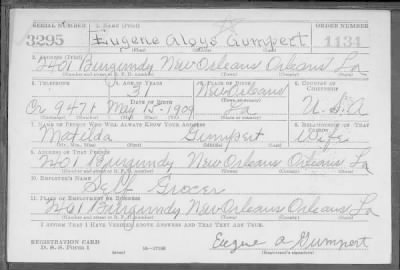 SERIAL NUMBER 1. NAME (Print) ORDER NUMBER
3295 Eugene Aloys Gumpert 1131
(First) (Middle) (Last)
2. ADDRESS (Print)
2401 Burgundy New Orleans Orleans La
(Number and street or R. F. D. number) (Town) (County) (State)
3. TELEPHONE 4. AGE IN YEARS 5. PLACE OF BIRTH 6. COUNTRY OF CITIZENSHIP
31 New Orleans
(Town or county)
DATE OF BIRTH
9471 May 15-1909 La U.S.A
(Exchange) (Number) (Mo.) (Day) (Yr.) (State or country)
7. NAME OF PERSON WHO WILL ALWAYS KNOW YOUR ADDRESS 8. RELATIONSHIP OF THAT PERSON
Matilda Gumpert Wife
(Mr., Mrs., Miss) (First) (Middle) (Last)
9. ADDRESS OF THAT PERSON
2401 Burgundy New Orleans Orleans La
(Number and street or R. F. D. number) (Town) (County) (State)
10. EMPLOYER'S NAME
Self Grocer
11. PLACE OF EMPLOYMENT OR BUSINESS
2401 Burgundy New Orleans Orleans La
(Number and street or R. F. D. number) (Town) (County) (State)
I AFFIRM THAT I HAVE VERIFIED ABOVE ANSWERS AND THAT THEY ARE TRUE.
REGISTRATION CARD
D. S. S. Form 1 (over) 16-17105 Eugene A Gumpert
(Registrant's signature)